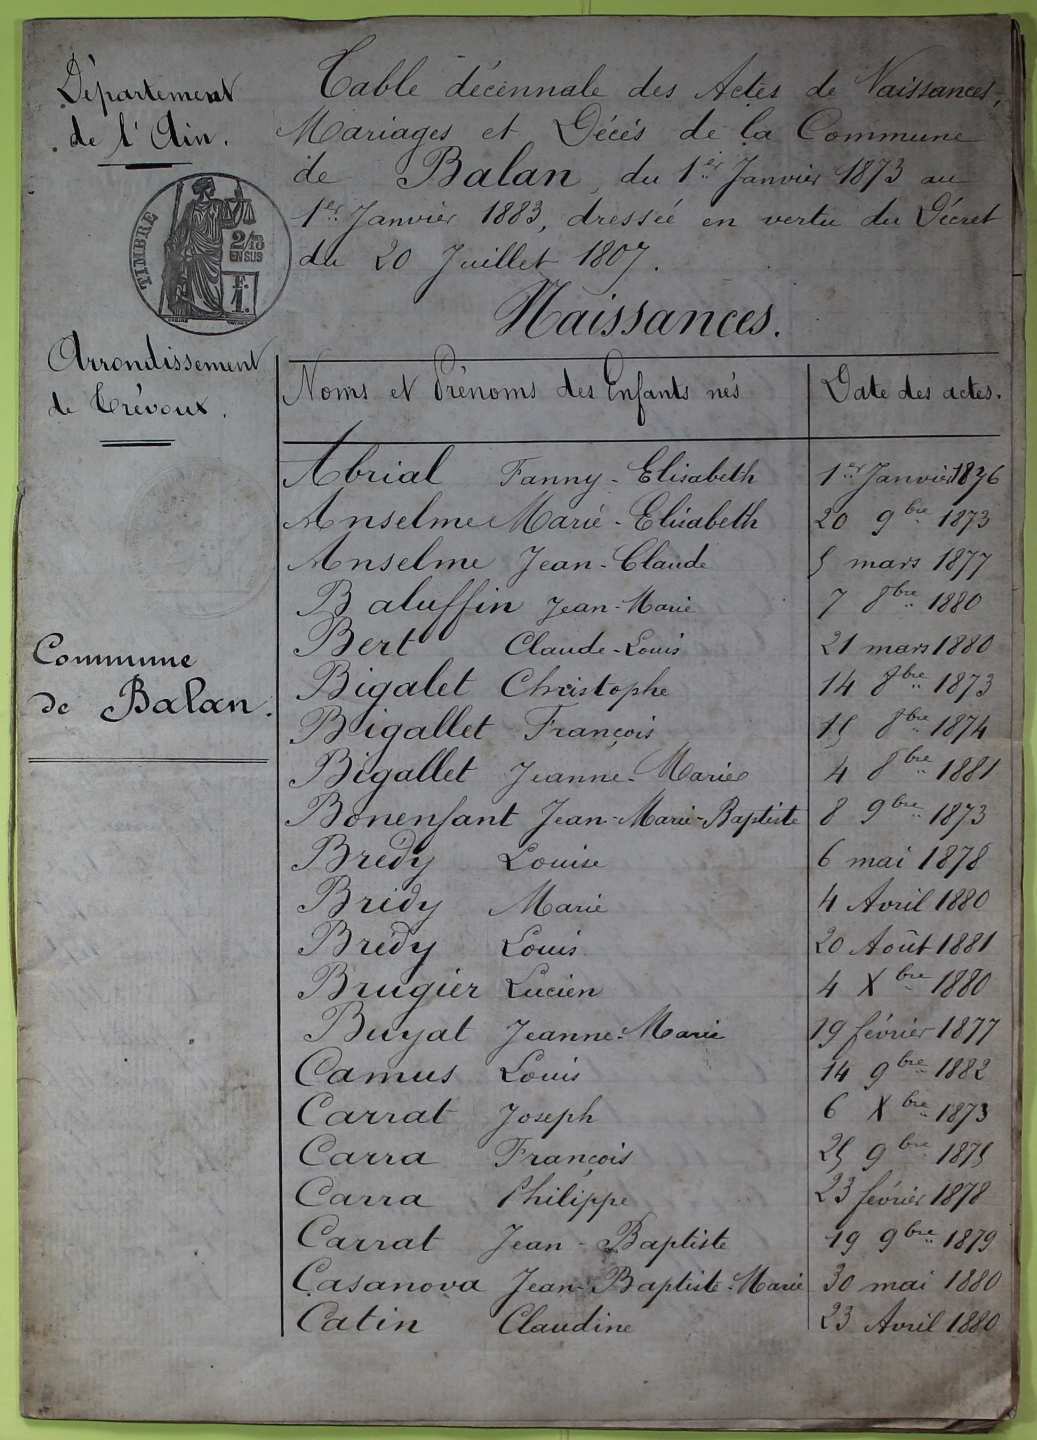 Département
de l'Ain.
TIMBRE
2/10
EN SUS
1 f.
Arrondissement
de Trévoux.
Commune
de Balan.
Table décennale des Actes de Naissances,
Mariages et Décès de la Commune
de Balan, du 1er Janvier 1873 au
1er Janvier 1883, dressée en vertu du Décret
du 20 Juillet 1807.
Naissances.
Noms et Prénoms des Enfants nés | Date des actes.
Abrial Fanny-Elisabeth 1er Janvier 1876
Anselme Marie-Elisabeth 20 9bre 1873
Anselme Jean-Claude 5 mars 1877
Baluffin Jean-Marie 7 8bre 1880
Bert Claude-Louis 21 mars 1880
Bigalet Christophe 14 8bre 1873
Bigallet François 15 8bre 1874
Bigallet Jeanne-Marie 4 8bre 1881
Bonenfant Jean-Marie-Baptiste 8 9bre 1873
Brédy Louise 6 mai 1878
Bridy Marie 4 Avril 1880
Brédy Louis 20 Août 1881
Brugier Lucien 4 Xbre 1880
Buyat Jeanne-Marie 19 février 1877
Camus Louis 14 9bre 1882
Carrat Joseph 6 Xbre 1873
Carra François 25 9bre 1875
Carra Philippe 23 février 1878
Carrat Jean-Baptiste 19 9bre 1879
Casanova Jean-Baptiste-Marie 30 mai 1880
Catin Claudine 23 Avril 1880